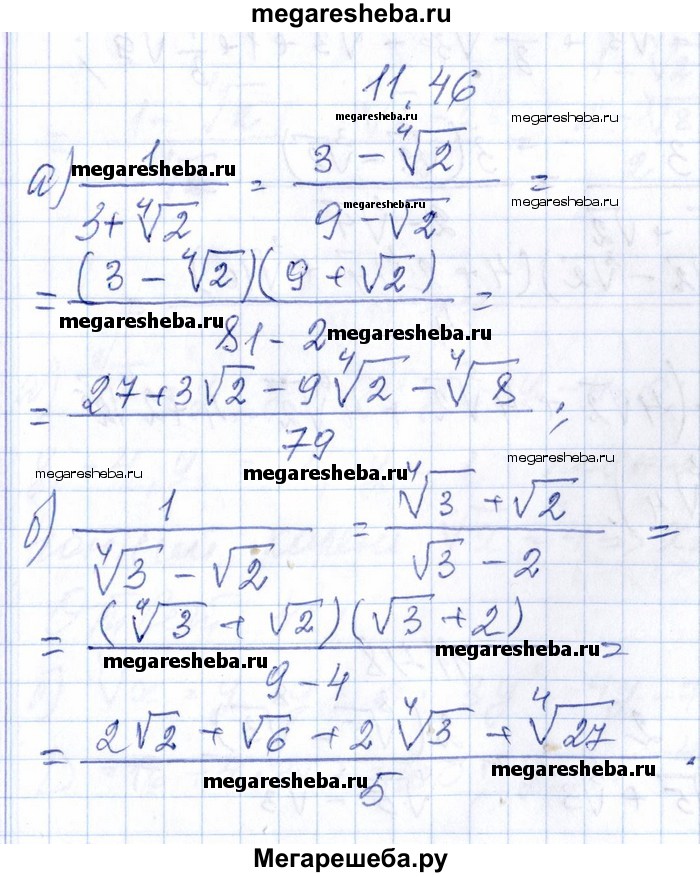 megaresheba.ru
11.46
megaresheba.ru megaresheba.ru
а) 1/(3+∜2) = (3 − ∜2)/(9 − √2) =
megaresheba.ru megaresheba.ru megaresheba.ru
= (3 − ∜2)(9 + √2)/(81 − 2) =
megaresheba.ru megaresheba.ru
= (27 + 3√2 − 9∜2 − ∜8)/79 ;
megaresheba.ru megaresheba.ru megaresheba.ru
б) 1/(∜3 − √2) = (∜3 + √2)/(√3 − 2) =
= (∜3 + √2)(√3 + 2)/(9 − 4) =
megaresheba.ru megaresheba.ru
= (2√2 + √6 + 2∜3 + ∜27)/5 .
megaresheba.ru megaresheba.ru
Мегарешеба.ру